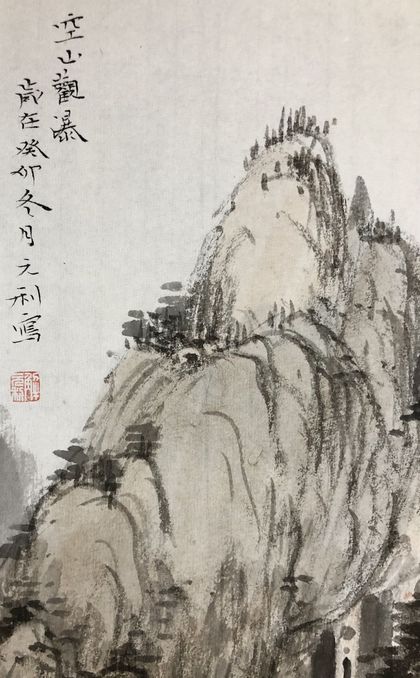 空山觀瀑
歲在癸卯冬月元利寫